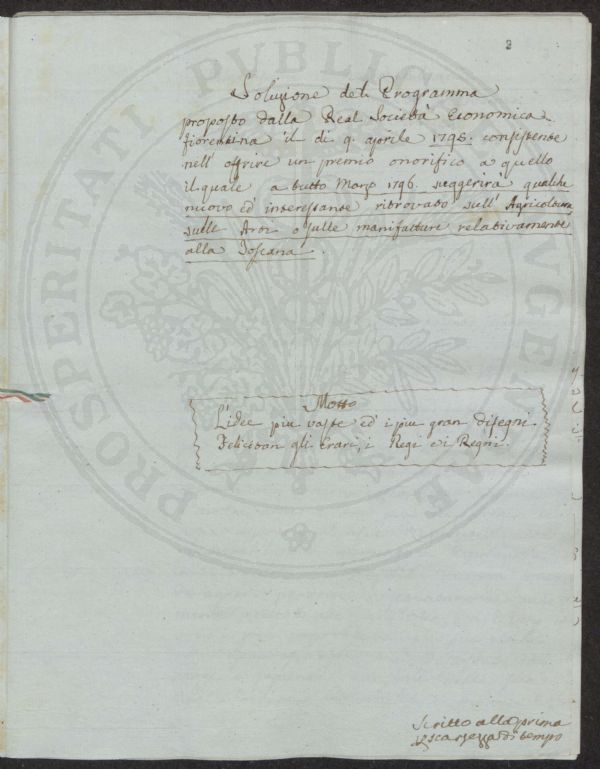 2
Soluzione del Programma
proposto dalla Real Società Economica
fiorentina il di 9. aprile 1795. consistente
nell' offrire un premio onorifico a quello
il quale a tutto Marzo 1796. suggerirà qualche
nuovo ed interessante ritrovato sull' Agricoltura
sulle Arti o sulle manifatture relativamente
alla Toscana.
Motto
L'idee piu vaste ed i piu gran disegni
Felicitan gli Erari, i Regi e i Regni.
Scritto alla prima
scarsezza di tempo
PROSPERITATI PUBLICAE AUGENDAE